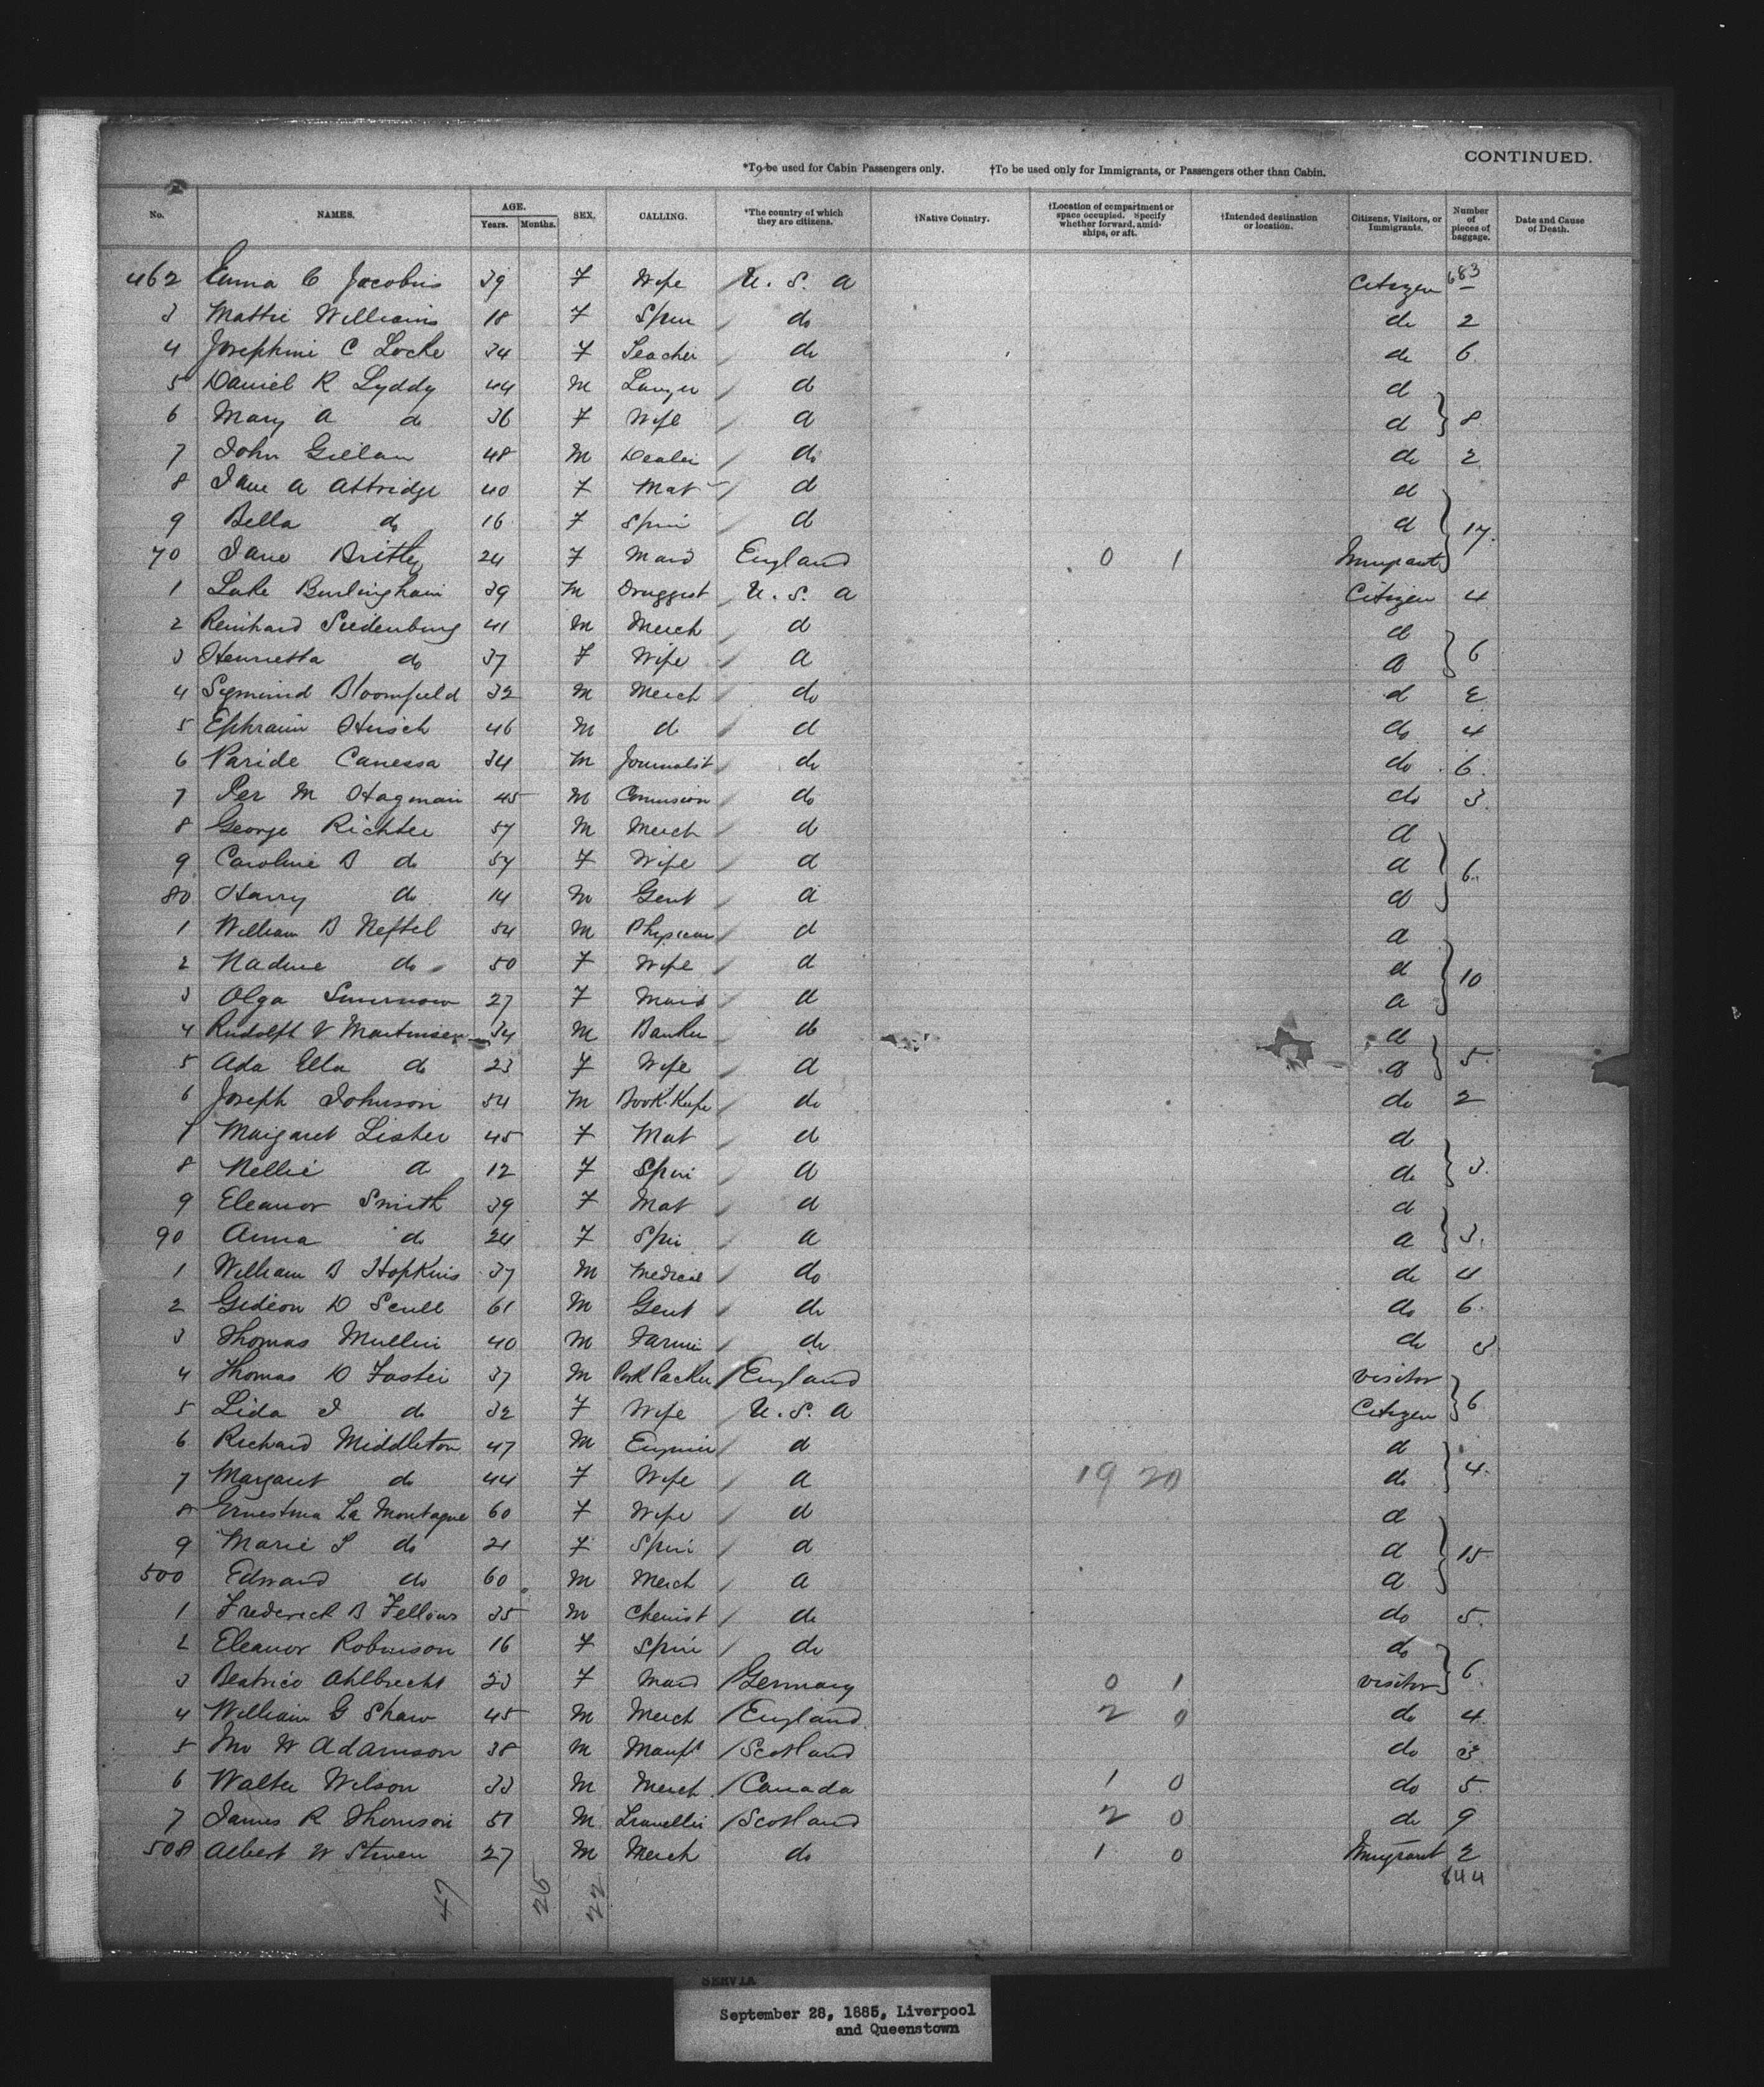 CONTINUED.
*To be used for Cabin Passengers only. †To be used only for Immigrants, or Passengers other than Cabin.
No. NAMES. AGE. Years. Months. SEX. CALLING. *The country of which they are citizens. †Native Country. †Location of compartment or space occupied. Specify whether forward, amidships, or aft. †Intended destination or location. Citizens, Visitors, or Immigrants. Number of pieces of baggage. Date and Cause of Death.
462 Emma C Jacobus 39 F Wife U. S. A Citizen 683
3 Mattie Williams 18 F Spin do do 2
4 Josephine C Locke 34 F Teacher do do 6
5 Daniel R Lyddy 44 M Lawyer do do
6 Mary A do 36 F Wife do do 8
7 John Gillan 48 M Dealer do do 2
8 Jane A Attridge 40 F Mat do do
9 Bella do 16 F Spin do do 17
70 Jane 24 F Maid England 0 1 Immigrant
1 Luke Burlingham 39 M Druggist U. S. A Citizen 4
2 Reinhard Siedenburg 41 M Merch do do
3 Henrietta do 37 F Wife do do 6
4 Sigmund Bloomfield 32 M Merch do do 2
5 Ephraim Hirsch 46 M do do do 4
6 Paride Canessa 34 M Journalist do do 6
7 Per M Hagman 45 M Comission do do 3
8 George Richter 57 M Merch do do
9 Caroline B do 54 F Wife do do 6
80 Harry do 14 M Gent do do
1 William B Neftel 54 M Physician do do
2 Nadine do 50 F Wife do do 10
3 Olga Smirnow 27 F Maid do do
4 Rudolph V Martinsen 34 M Banker do do
5 Ada Ella do 23 F Wife do do 5
6 Joseph Johnson 54 M Book-Keepr do do 2
7 Margaret Lister 45 F Mat do do
8 Nellie do 12 F Spin do do 3
9 Eleanor Smith 39 F Mat do do
90 Anna do 24 F Spin do do 3
1 William B Hopkins 37 M Medical do do 4
2 Gideon D Scull 61 M Gent do do 6
3 Thomas Mullin 40 M Farmer do do 3
4 Thomas D Foster 37 M Pork Packer England visitor
5 Lida J do 32 F Wife U. S. A Citizen 6
6 Richard Middleton 47 M Engineer do do
7 Margaret do 44 F Wife do 19 20 do 4
8 Ernestina La Montagne 60 F Wife do do
9 Marie L do 21 F Spin do do 15
500 Edward do 60 M Merch do do
1 Frederick B Fellows 35 M Chemist do do 5
2 Eleanor Robinson 16 F Spin do do
3 Beatrice Ahlbrecht 23 F Maid Germany 0 1 visitor 6
4 William G Shaw 45 M Merch England 2 0 do 4
5 Jno W Adamson 38 M Manft Scotland do 3
6 Walter Wilson 33 M Merch Canada 1 0 do 5
7 James R Thomson 51 M Traveller Scotland 2 0 do 9
508 Albert W Stiven 27 M Merch do 1 0 Immigrant 2
844
47 25 22
SERVIA
September 28, 1885, Liverpool
and Queenstown